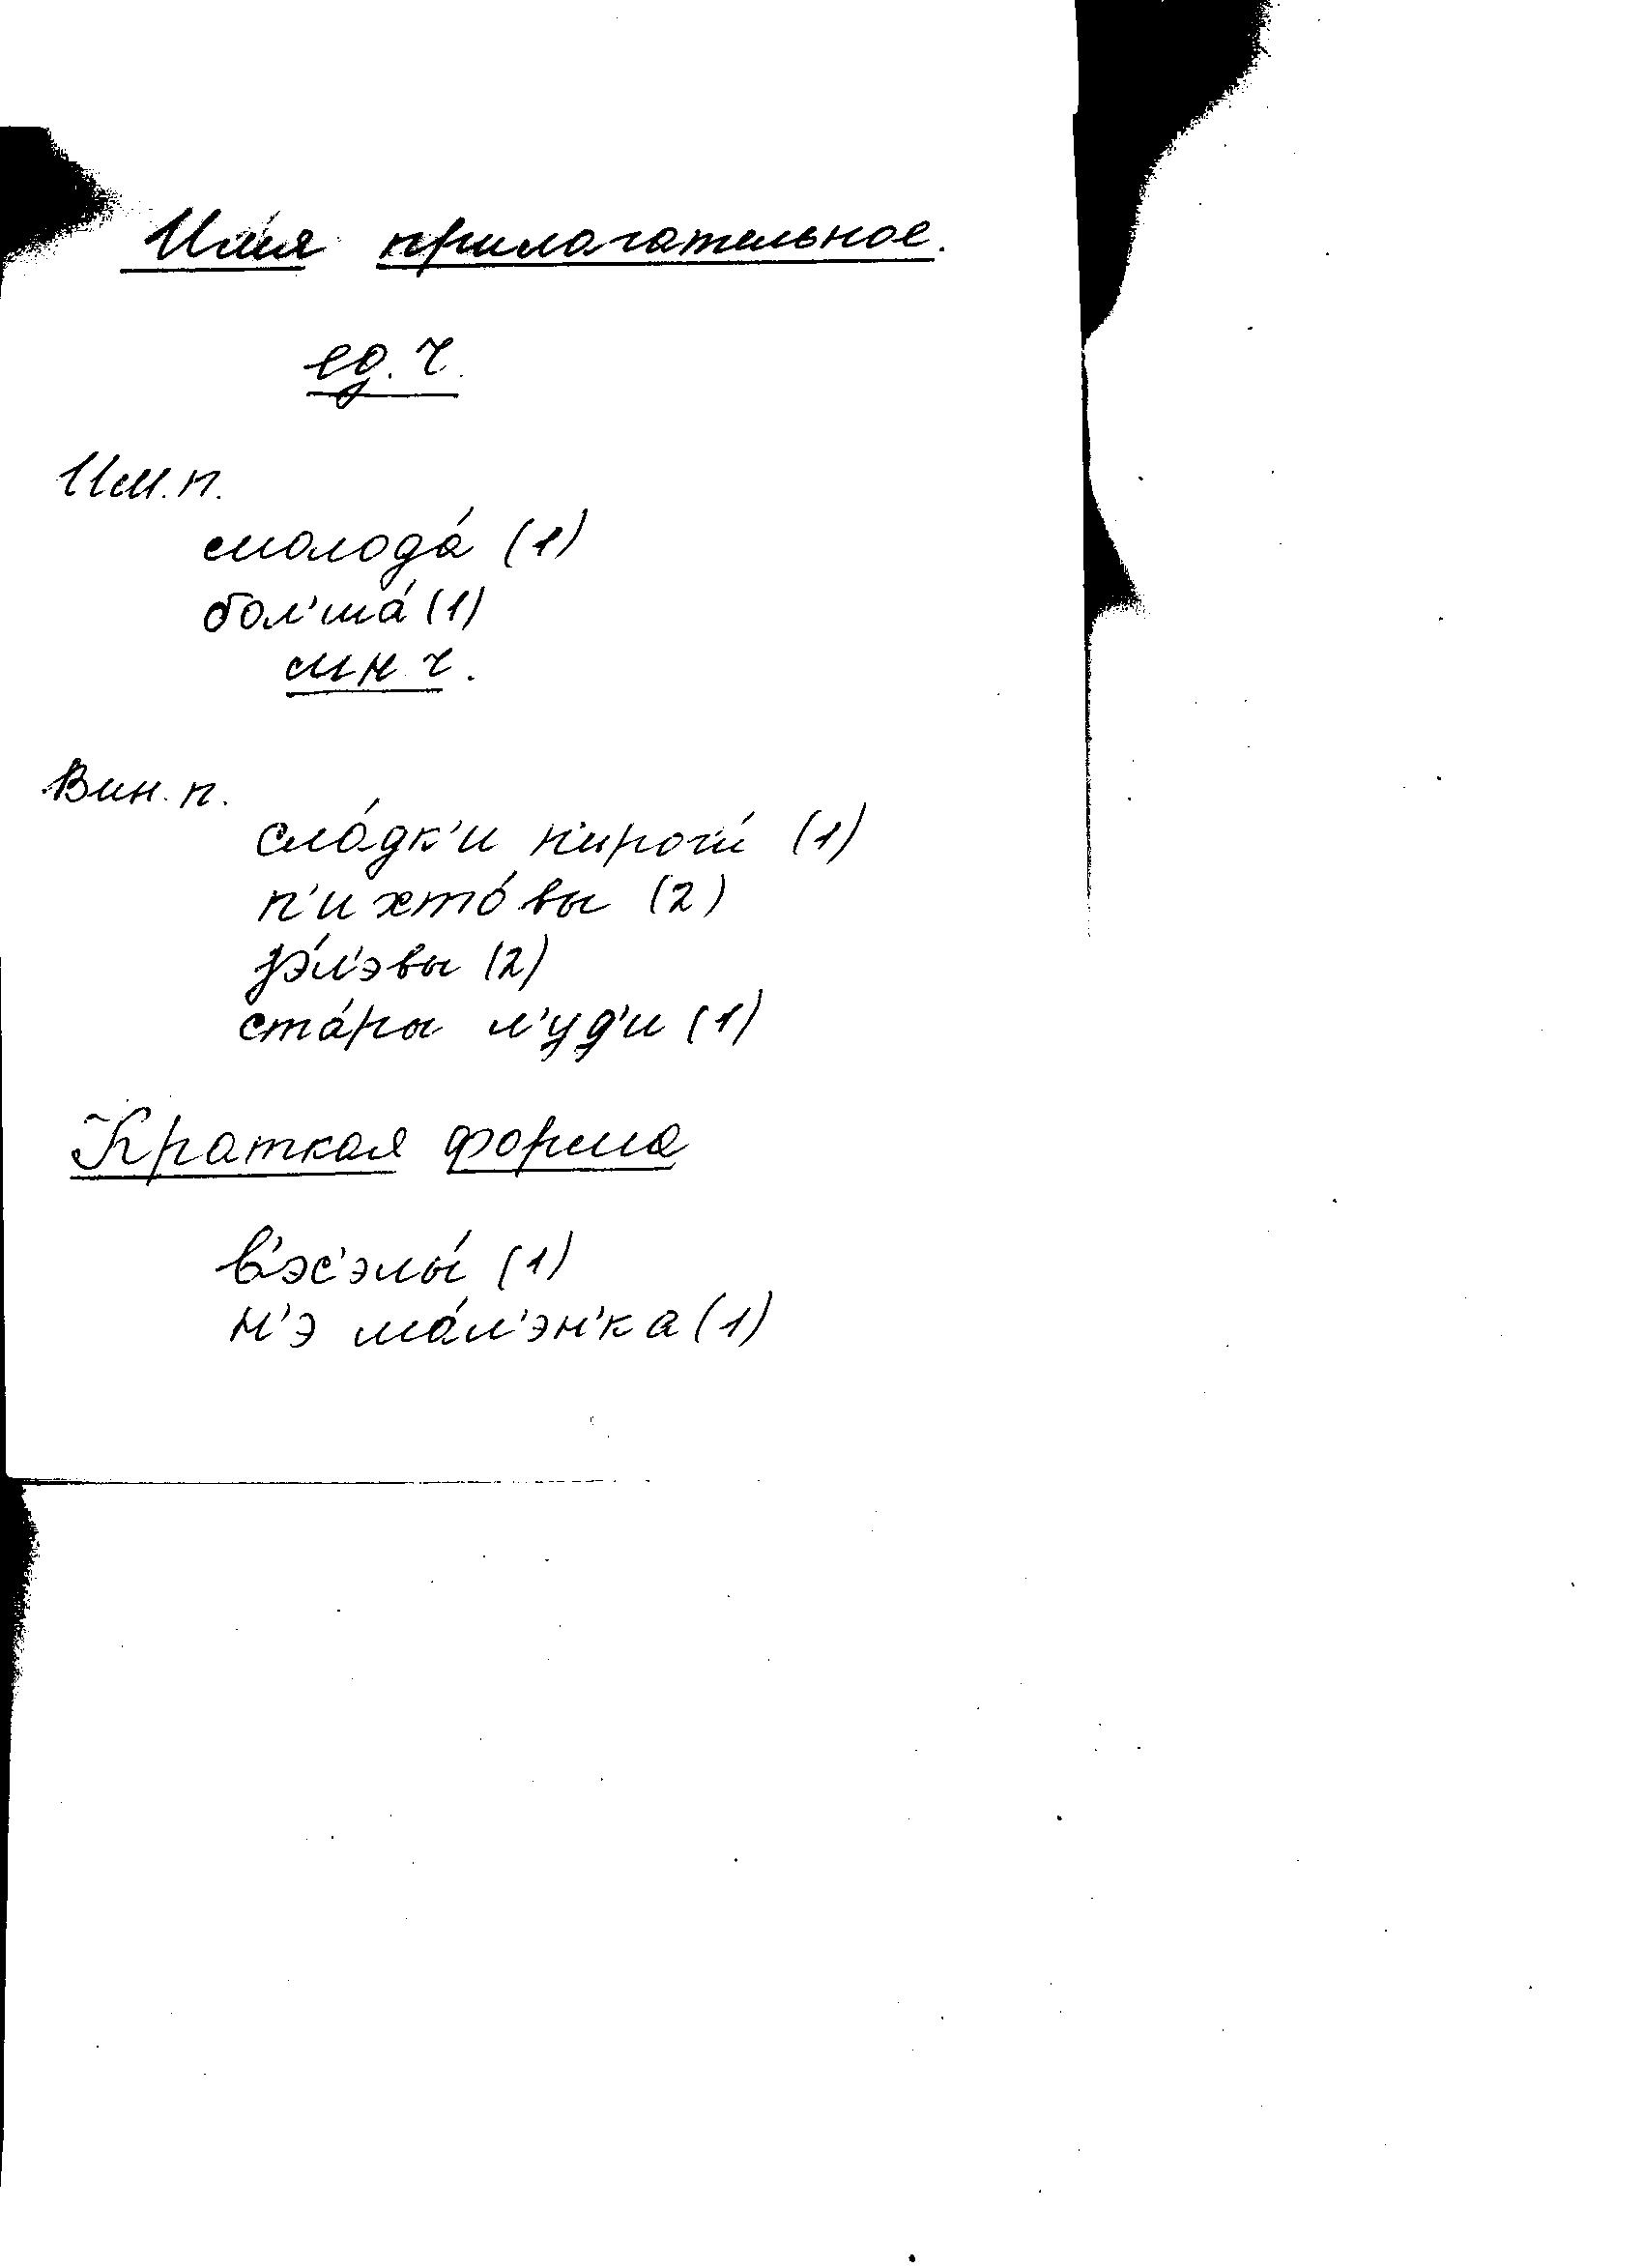 Имя прилагательное.
ед. ч.
Им. п.
молода́ (1)
бол'ша́ (1)
мн. ч.
Вин. п.
сла́дк'и п'ироги́ (1)
п'ихто́вы (2)
л'у́д'и (1)
Краткая форма
в'эс'элы́ (1)
н'э ма́л'эн'ка (1)